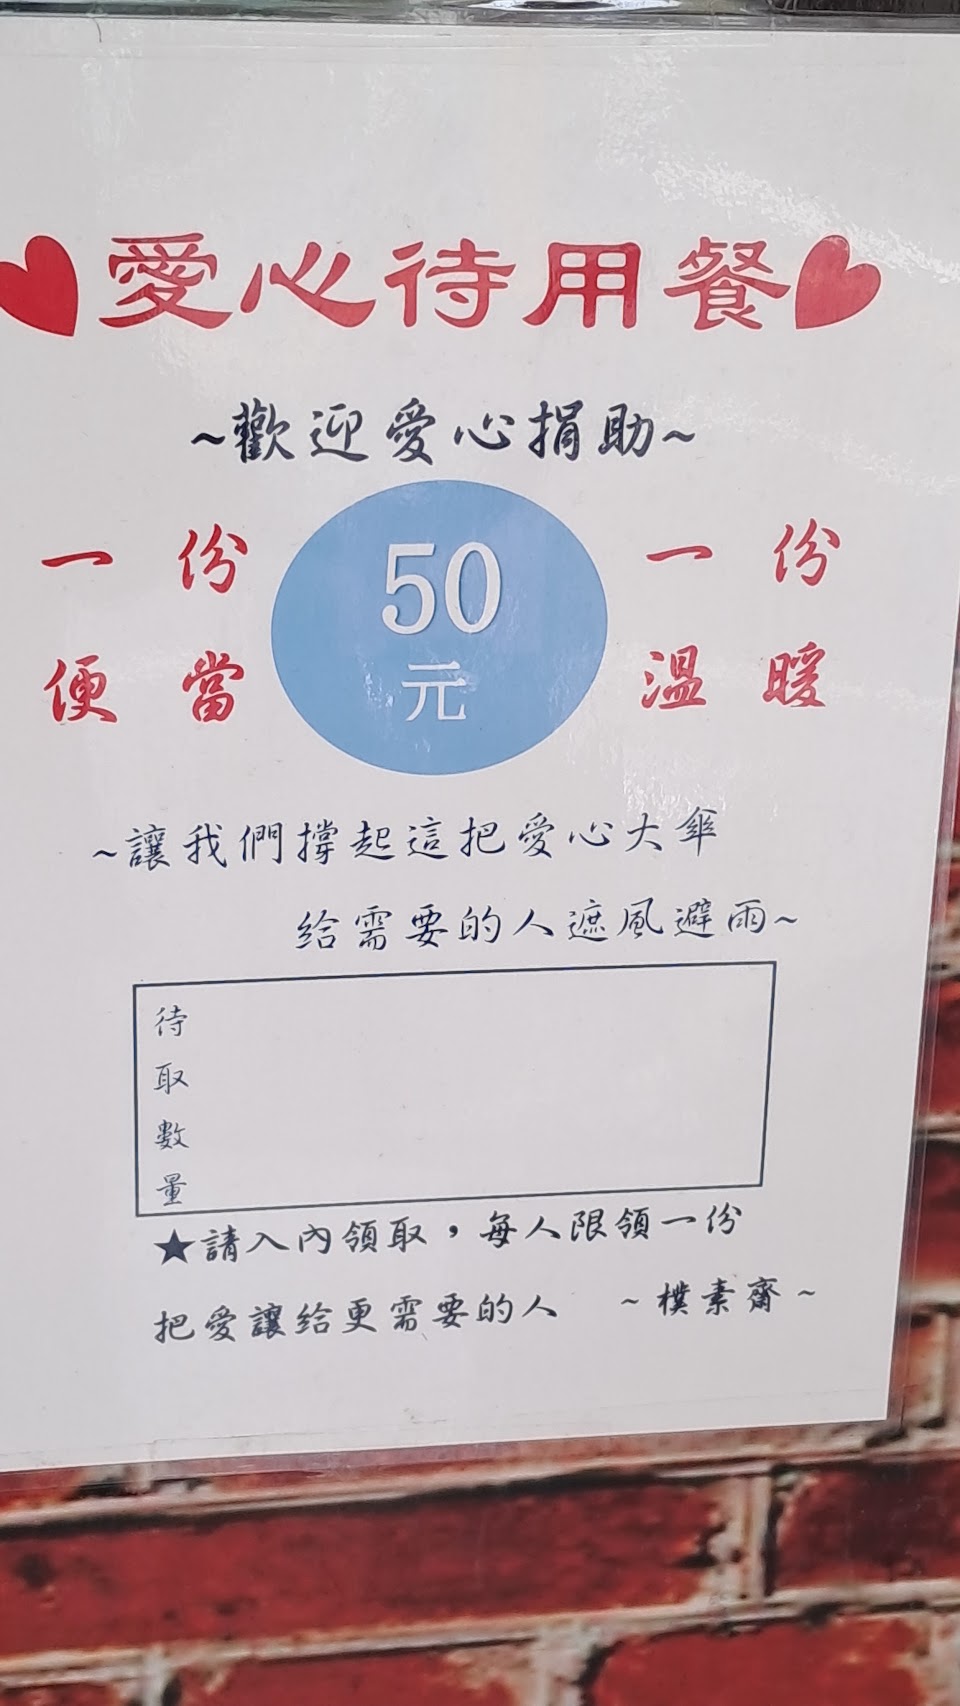 愛心待用餐
~歡迎愛心捐助~
一份 50 一份
便當 元 溫暖
~讓我們撐起這把愛心大傘
給需要的人遮風避雨~
待
取
數
量
★請入內領取，每人限領一份
把愛讓給更需要的人 ~樸素齋~